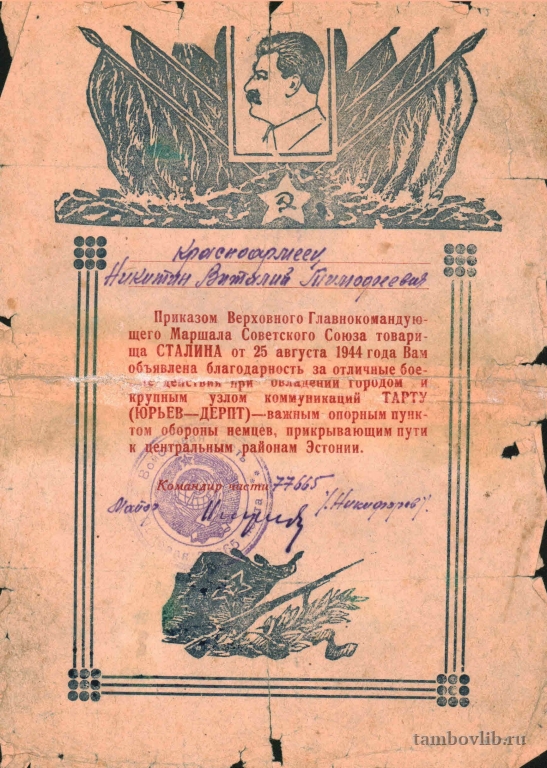 Красноармеец
Никитин Виталий Тимофеевич
Приказом Верховного Главнокомандую-
щего Маршала Советского Союза товари-
ща СТАЛИНА от 25 августа 1944 года Вам
объявлена благодарность за отличные бое-
действия при овладении городом и
крупным узлом коммуникаций ТАРТУ
(ЮРЬЕВ—ДЕРПТ)—важным опорным пунк-
том обороны немцев, прикрывающим пути
к центральным районам Эстонии.
Командир части 77665
Майор /Никифоров/
tambovlib.ru